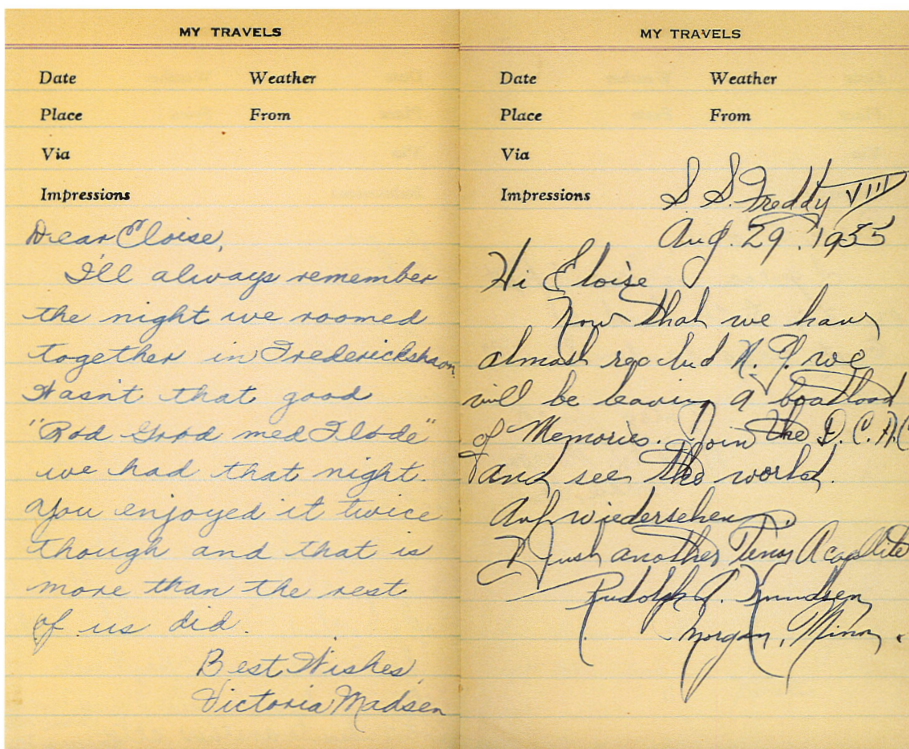 MY TRAVELS
Date Weather
Place From
Via
Impressions
Dear Eloise,
I'll always remember
the night we roomed
together in Frederickshaven.
Wasn't that good
"Rod Grod med Flode"
we had that night.
You enjoyed it twice
though and that is
more than the rest
of us did.
Best Wishes,
Victoria Madsen
MY TRAVELS
Date Weather
Place From
Via
Impressions
S. S. Freddy VIII
Aug. 29. 1955
Hi Eloise
Now that we have
almost reached N. Y. we
will be leaving a boatload
of Memories. Join the D. C. A. C
and see the world.
Auf wiedersehen.
Just another Tenor Acapellite
Rudolph J. Knudsen
Morgan, Minn.